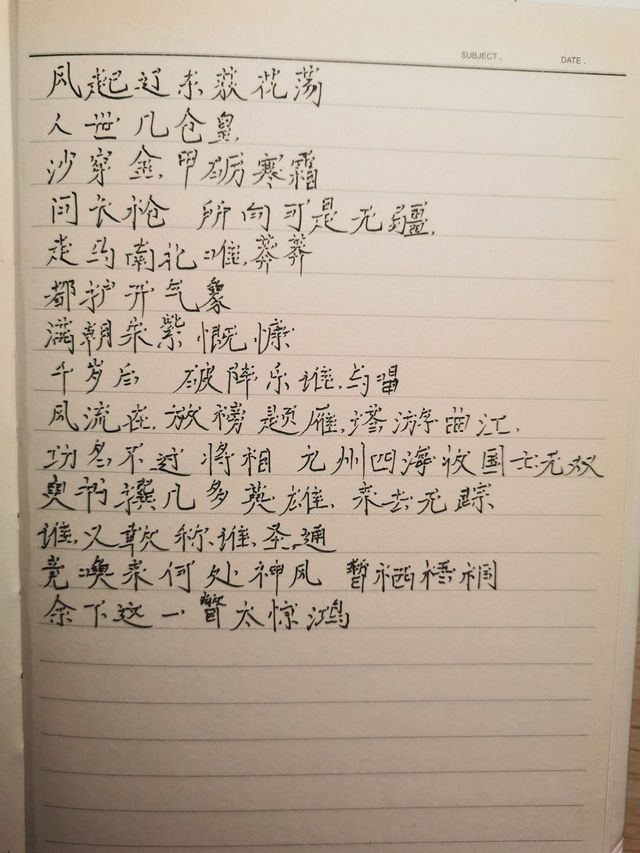 SUBJECT. DATE.
风起辽东荻花荡
人世几仓皇
沙穿金甲砺寒霜
问长枪 所向可是无疆
走马南北谁莽莽
都护开气象
满朝朱紫慨慷
千岁后 破阵乐谁与唱
风流在放榜题雁塔游曲江
功名不过将相 九州四海收国士无双
史书撰几多英雄来去无踪
谁又敢称谁圣通
竟换来何处神风 暂栖梧桐
余下这一瞥太惊鸿